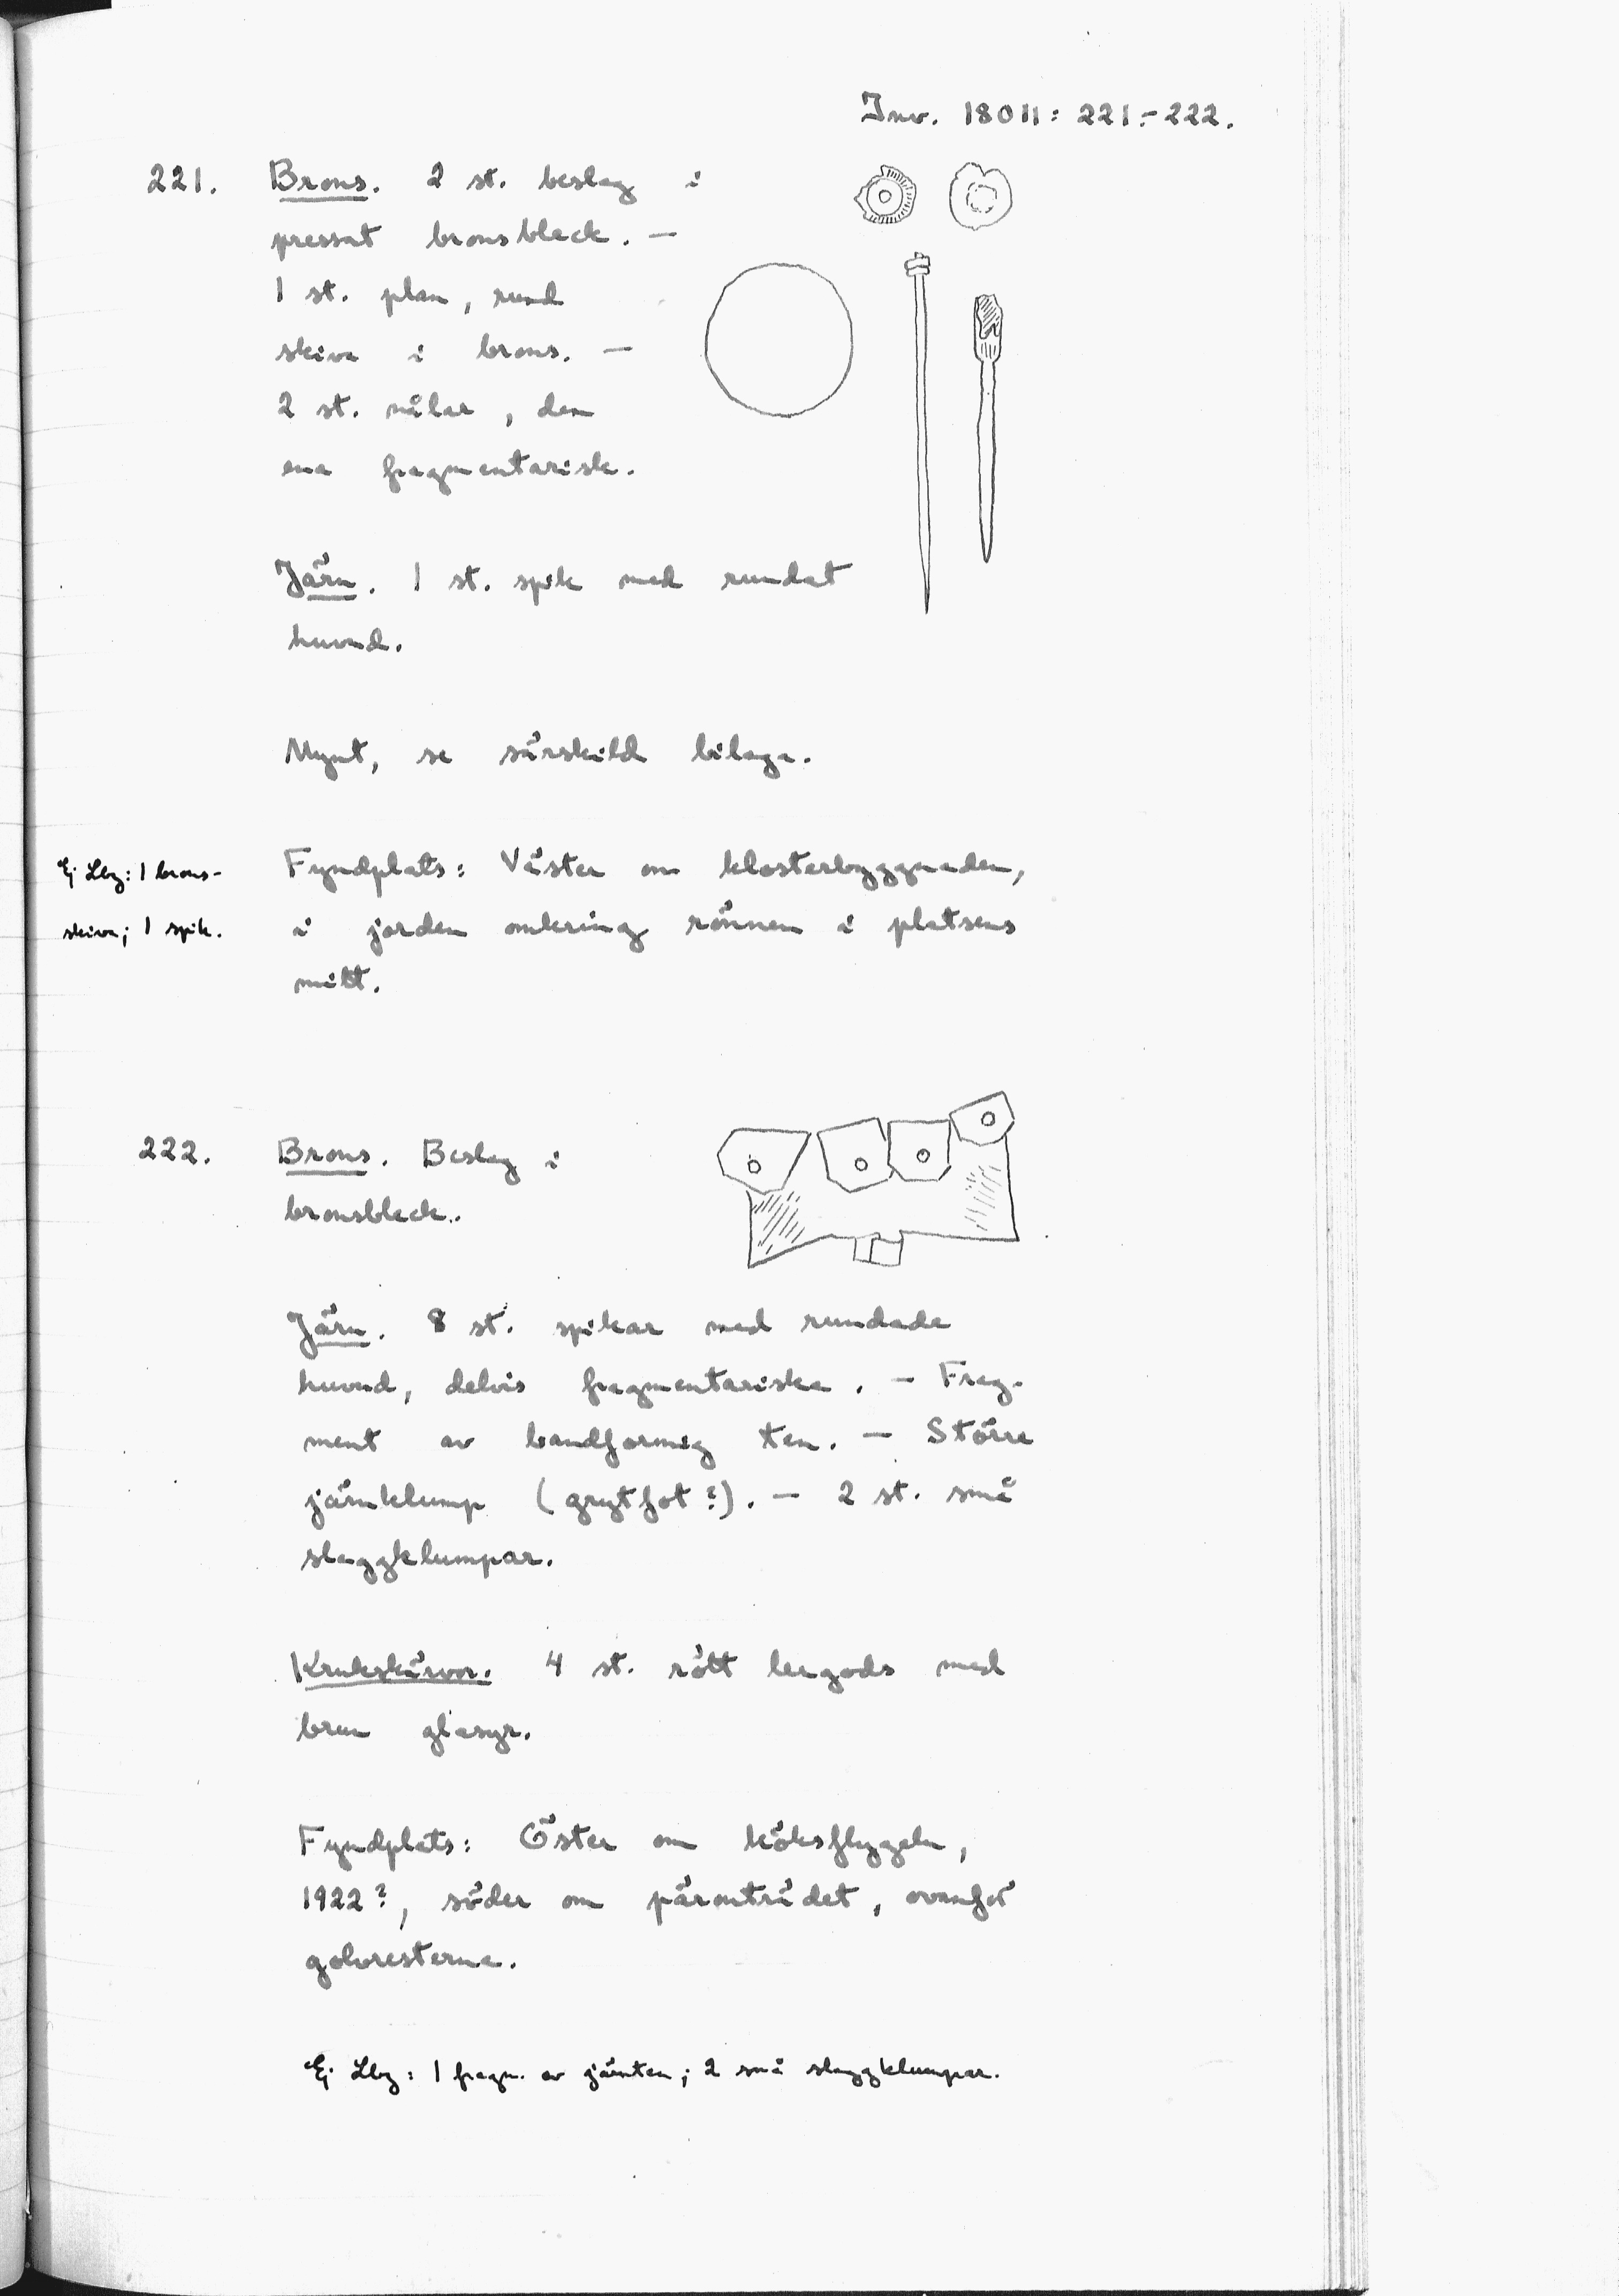 Inv. 18011: 221-222.
221. Brons. 2 st. beslag i
pressat bronsbleck. —
1 st. plan, rund
skiva i brons. —
2 st. nålar, den
ena fragmentarisk.
Järn. 1 st. spik med rundat
huvud.
Mynt, se särskild bilaga.
Ej Lbg: 1 brons-
skiva; 1 spik.
Fyndplats: Väster om klosterbyggnaden,
i jorden omkring rönnen i platsens
mitt.
222. Brons. Beslag i
bronsbleck.
Järn. 8 st. spikar med rundade
huvud, delvis fragmentariska. — Frag-
ment av bandformig ten. — Större
järnklump (grytfot?). — 2 st. små
slaggklumpar.
Krukskärvor. 4 st. rött lergods med
brun glasyr.
Fyndplats: Öster om köksflygeln,
1922?, söder om päronträdet, ovanför
golvresterna.
Ej Lbg: 1 fragm. av järnten; 2 små slaggklumpar.